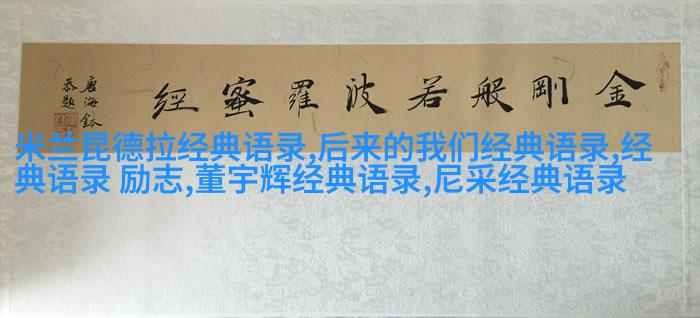 金剛般若波羅蜜經
海
恭題
米兰昆德拉经典语录,后来的我们经典语录,经
典语录 励志,董宇辉经典语录,尼采经典语录